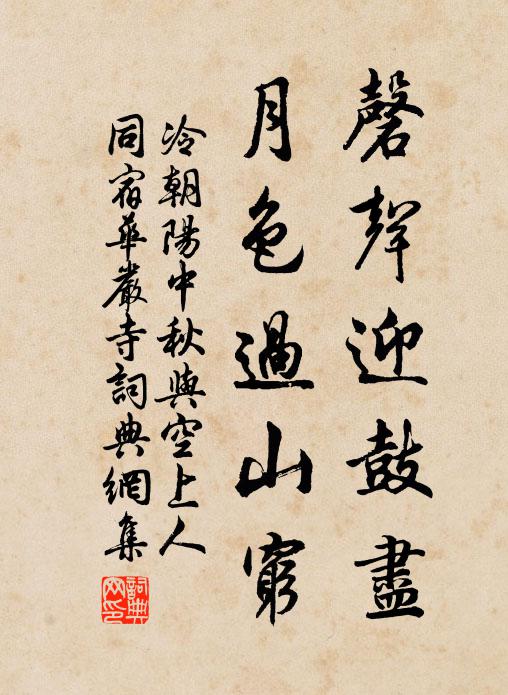 磬聲迎鼓盡
月色過山窮
冷朝陽中秋與空上人
同宿華嚴寺詞典網集
詞典網印